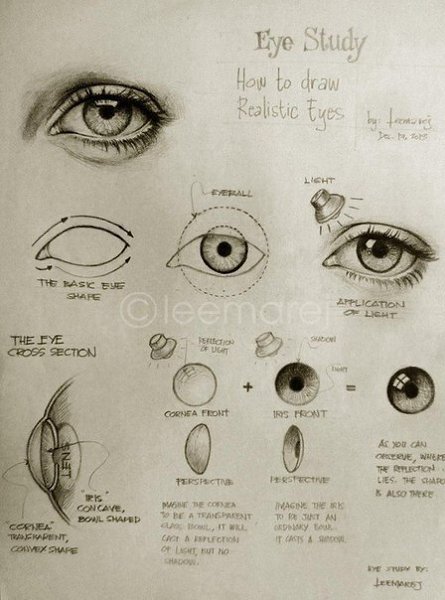 Eye Study
How to draw
Realistic Eyes
by: leemarej
Dec. 19, 2013
LIGHT
EYEBALL
THE BASIC EYE
SHAPE
APPLICATION
OF LIGHT
©leemarej
THE EYE
CROSS SECTION
REFLECTION
OF LIGHT
SHADOW
LIGHT
+
=
CORNEA FRONT
IRIS FRONT
LENS
PERSPECTIVE
PERSPECTIVE
AS YOU CAN
OBSERVE, WHERE
THE REFLECTION
LIES. THE SHADOW
IS ALSO THERE
"IRIS"
CONCAVE,
BOWL SHAPED
"CORNEA"
TRANSPARENT,
CONVEX SHAPE
IMAGINE THE CORNEA
TO BE A TRANSPARENT
GLASS BOWL, IT WILL
CAST A REFLECTION
OF LIGHT, BUT NO
SHADOW.
IMAGINE THE IRIS
TO BE JUST AN
ORDINARY BOWL.
IT CASTS A SHADOW.
EYE STUDY BY:
LEEMAREJ